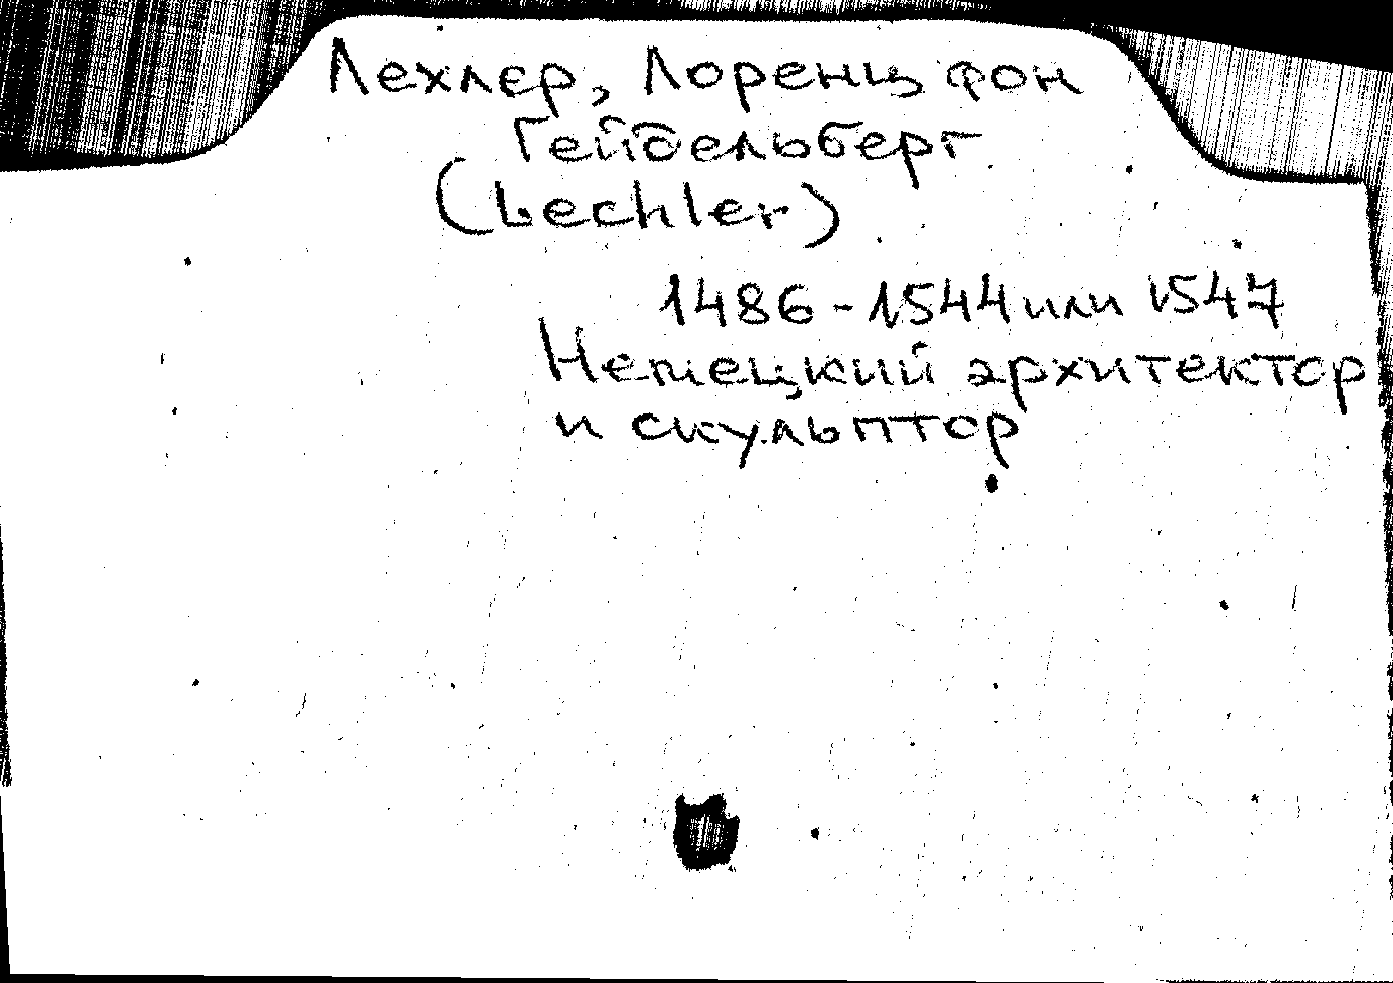 Лехлер, Лоренц фон
Гейдельберг
(Lechler)
1486-1544 или 1547
Немецкий архитектор
и скульптор